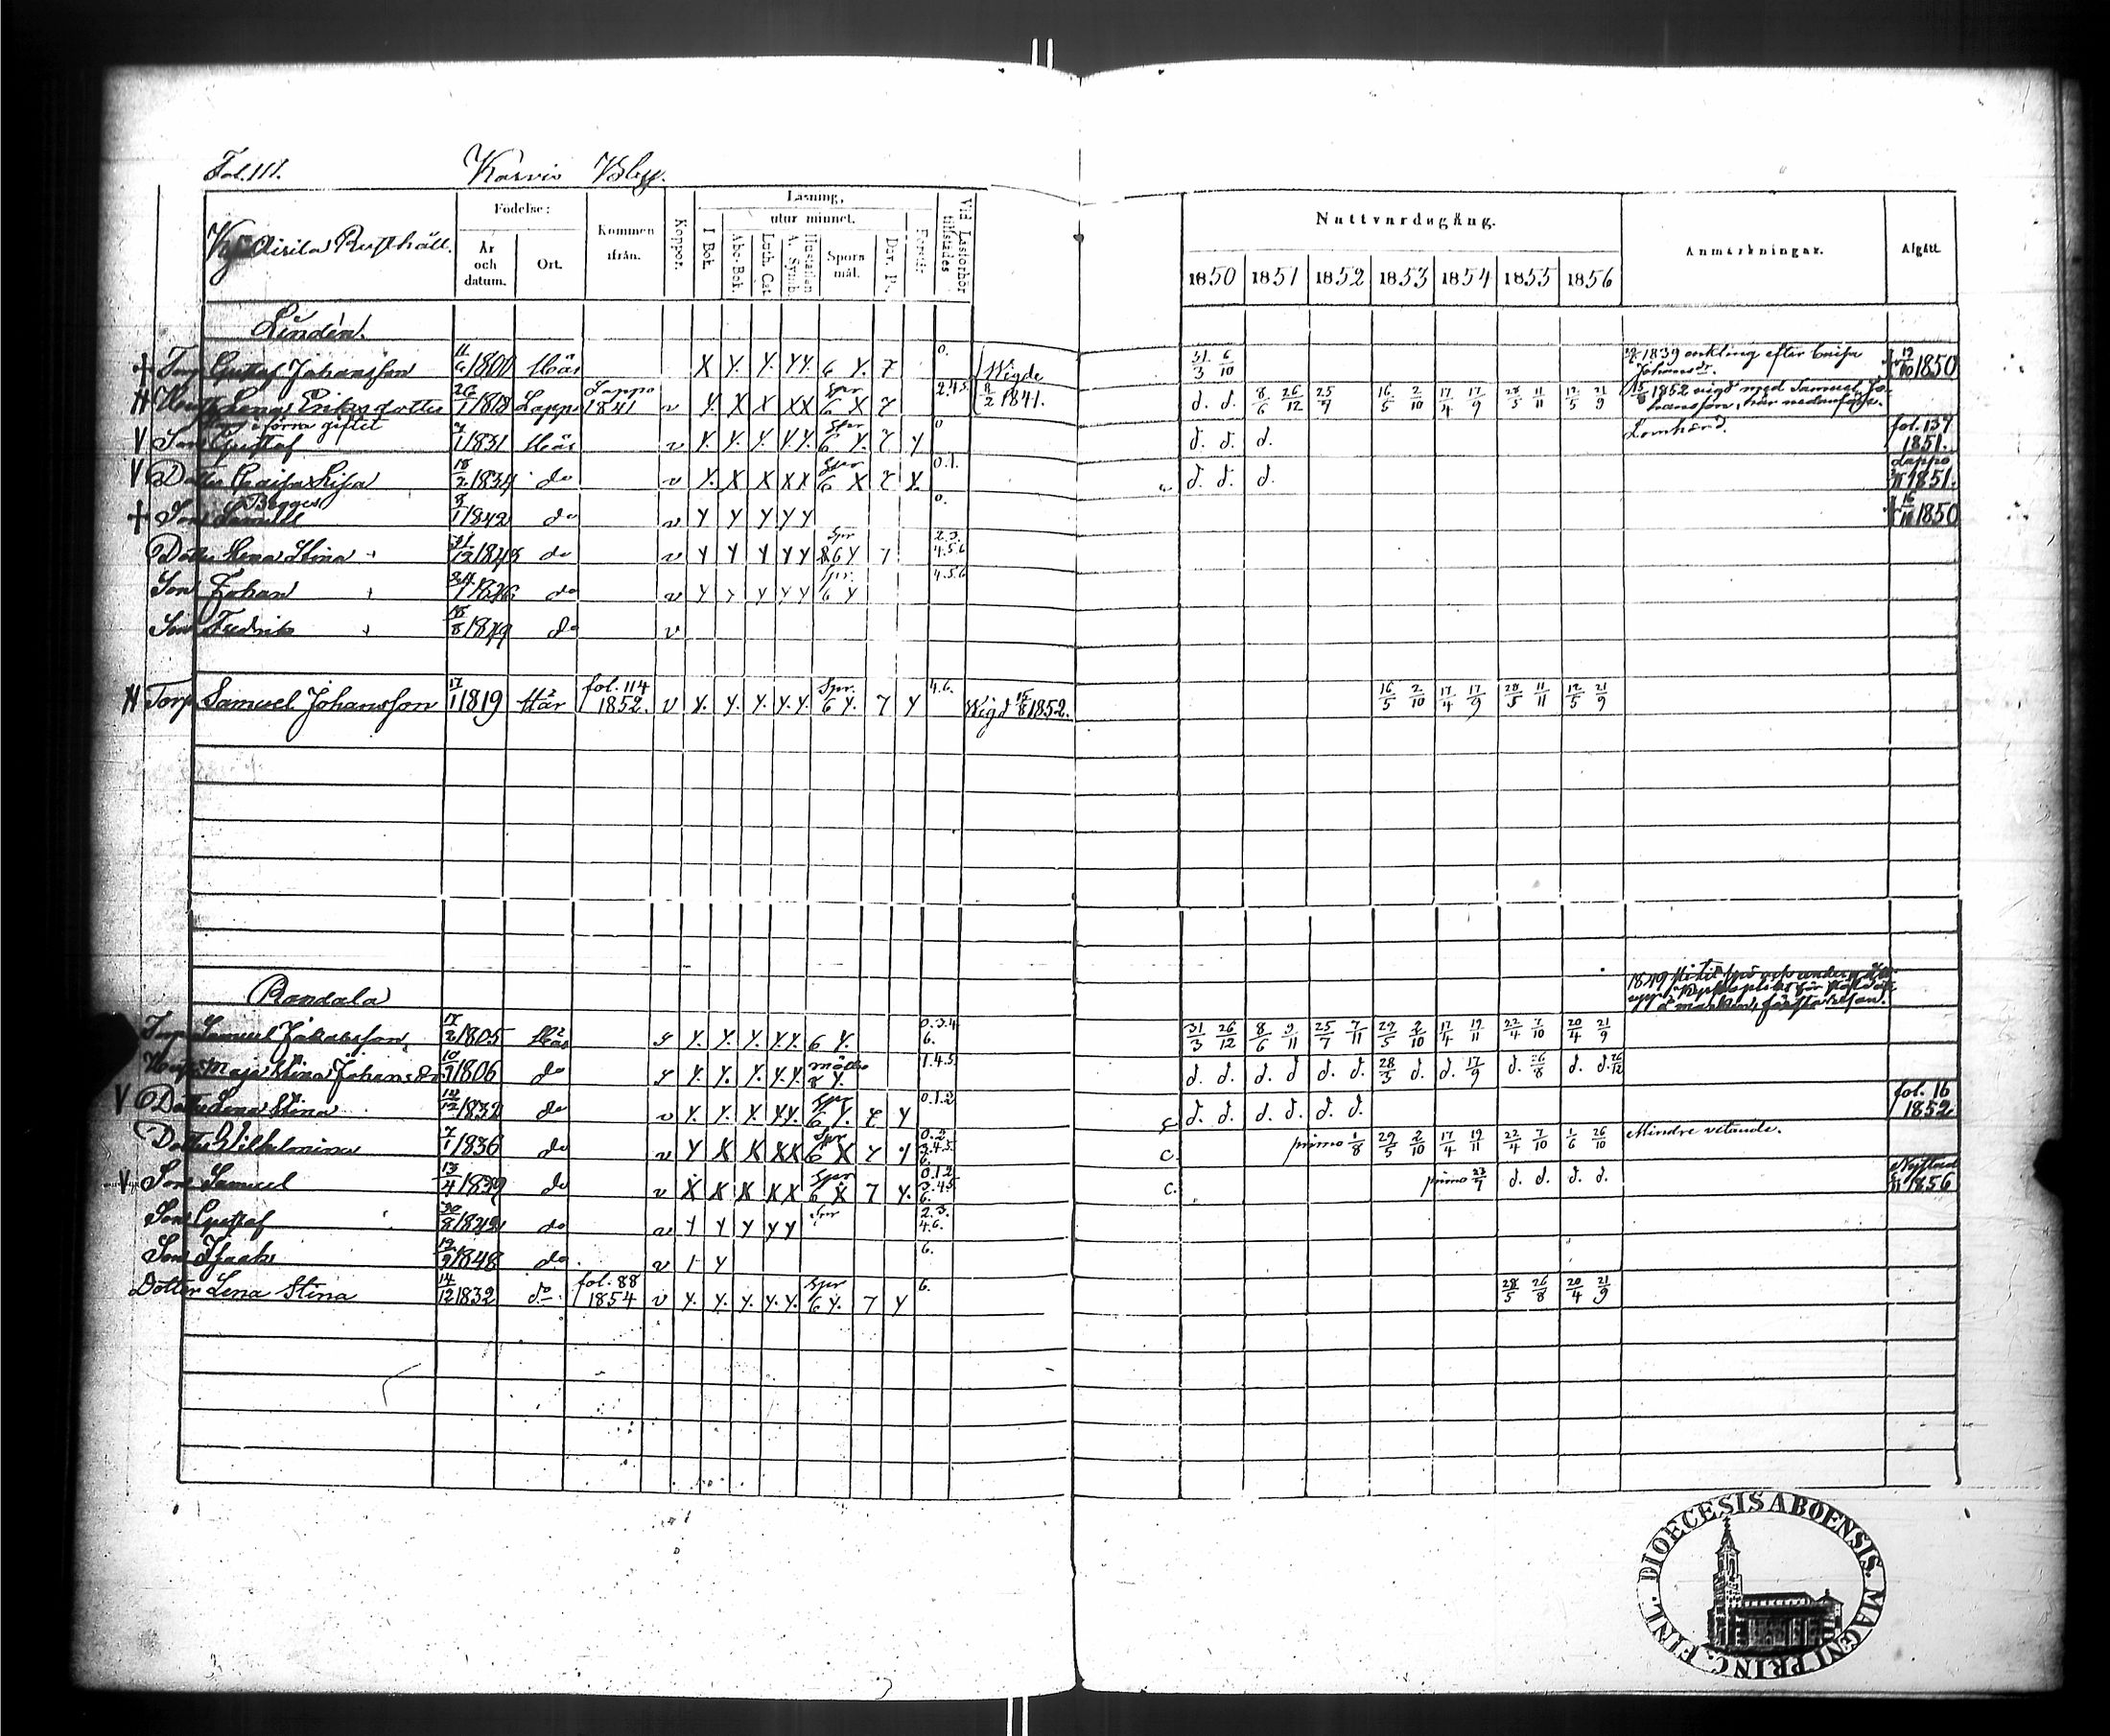 Fol. 111. Karvis By.
Rusthåll.
Födelse:
År och datum.
Ort.
Kommen ifrån.
Koppor.
Läsning,
utur minnet.
I Bok.
Abc-Bok.
Luth. Cat.
A. Symb.
Hustaflan
Spörsmål.
Dav. P.
Förstår
Vid Läsförhör tillstädes
Nattvardsgång.
1850 1851 1852 1853 1854 1855 1856
Anmärkningar.
Afgått.
Lindén.
Torp Gustaf Johansson 11/6 X y. y. yy. 6 y. 7 0. Wigde 31/3 6/10 1839 enkling efter Caisa Johansdr. 19/10 1850
Lena Eriksdotter 26/1 1818 Lappo Lappo 1841 v y. X X XX Spr 6 X 7 2.4.5. 8/2 1841. d. d. 8/6 26/12 25/7 16/5 2/10 17/4 17/9 28/5 11/11 12/5 21/9 15/8 1852 vigd med Samuel Johansson, här nedanföre.
i förra giftet
Son Gustaf 1831 v y. y. y. y.y. Spr 6 y. 7 y 0 d. d. d. Lomhörd. fol. 137 1851.
Dotter Caisa Lisa 18/2 1834 do v y. X X XX Spr 6 X 7 X. 0.1. d. d. d. Lappo 1851.
Begges
Son 8/1 1842 do v y y y y y 0. 16/10 1850
Dotter Lena Stina 31/12 do v y y y y y Spr 6 y 7 2.3. 4.5.6
Son Johan do v y y y y y Spr. 6 y 4.5.6
Son Fredrik 15/8 1849 do v
Torp Samuel Johansson 17/1 1819 fol. 114 1852. v y. y. y. y.y. Spr. 6 y. 7 y 4.6. Wigd 15/8 1852. 16/5 2/10 17/4 17/9 28/5 11/11 12/5 21/9
Randala
1849
Torp Samuel 1805 y. y. y. y.y. 6 y. 0.3.4 6. 31/3 26/12 8/6 9/11 25/7 7/11 29/5 2/10 17/4 19/11 22/4 7/10 20/4 21/9
Maja Stina Johansdr 10/9 1806 do y. y. y. y.y. 8 y. 1.4.5. d. d. d. d d. d. 28/3 d. d. 17/9 d. 26/8 d. d. 26/12
Dotter Lena Stina 14/12 1832 do v y. y. y. yy. Spr 6 y. 7 y 0.1.2 d. d. d. d. d. d. fol. 16 1852
Dotter Wilhelmina 7/1 1836 do v y X X XX Spr 6 X 7 y 0.2. c. primo 1/8 29/5 2/10 17/4 19/11 22/4 7/10 1/6 26/10 Mindre vetande.
Son Samuel 13/4 1839 do v X X X X X Spr 6 X 7 y. 0.1.2 3.4.5 6. c. primo d. d. d. d. Nystad 1856
Son Gustaf 30/8 do v y y y y y Spr 2.3. 4.6.
Son Isaak 19/9 1848 do. v 1 y 6.
Dotter Lena Stina 14/12 1832 do. fol. 88 1854 v y. y. y. y.y. Spr 6 y. 7 y 6. 28/5 26/8 20/4 21/9
DIOECESIS ABOENSIS. MAGNI PRINC. FINL.